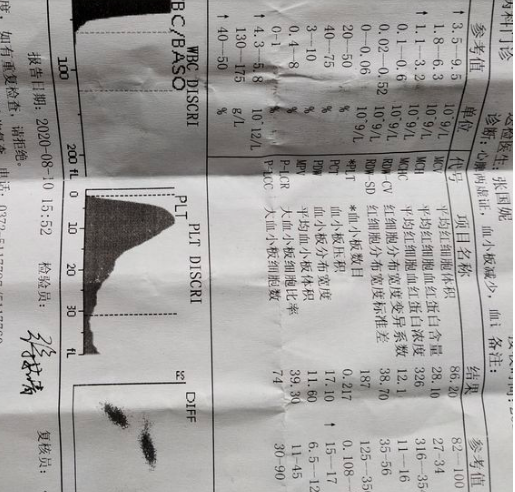 内科门诊
送检医生: 张国妮
诊断: 心脾两虚证, 血小板减少, 血
备注:
参考值 单位 代号 项目名称 结果 参考值
↑ 3.5--9.5 10^9/L MCV 平均红细胞体积 86.20 82--100
1.8--6.3 10^9/L MCH 平均红细胞血红蛋白含量 28.10 27-34
↑ 1.1--3.2 10^9/L MCHC 平均红细胞血红蛋白浓度 326 316--35
0.1--0.6 10^9/L RDW-CV 红细胞分布宽度变异系数 12.1 11--16
0.02--0.52 10^9/L RDW-SD 红细胞分布宽度标准差 38.70 35-56
0--0.06 10^9/L *PLT *血小板数目 187 125--35
20--50 % PCT 血小板压积 0.217 0.108--
40--75 % PDW 血小板分布宽度 17.10 ↑ 15--17
3--10 % MPV 平均血小板体积 11.60 6.5--12
0.4--8 % P-LCR 大血小板细胞比率 39.30 11-45
0-1 % P-LCC 大血小板细胞数 74 30-90
↑ 4.3--5.8 10^12/L
130--175 g/L
↑ 40--50 %
WBC DISCRI
BC/BASO
PLT DISCRI
PLT
DIFF
100 200 fL 0 10 20 30 fL
报告日期: 2020-08-10 15:52 检验员: 复核员:
度, 如有重复检查, 请拒绝。